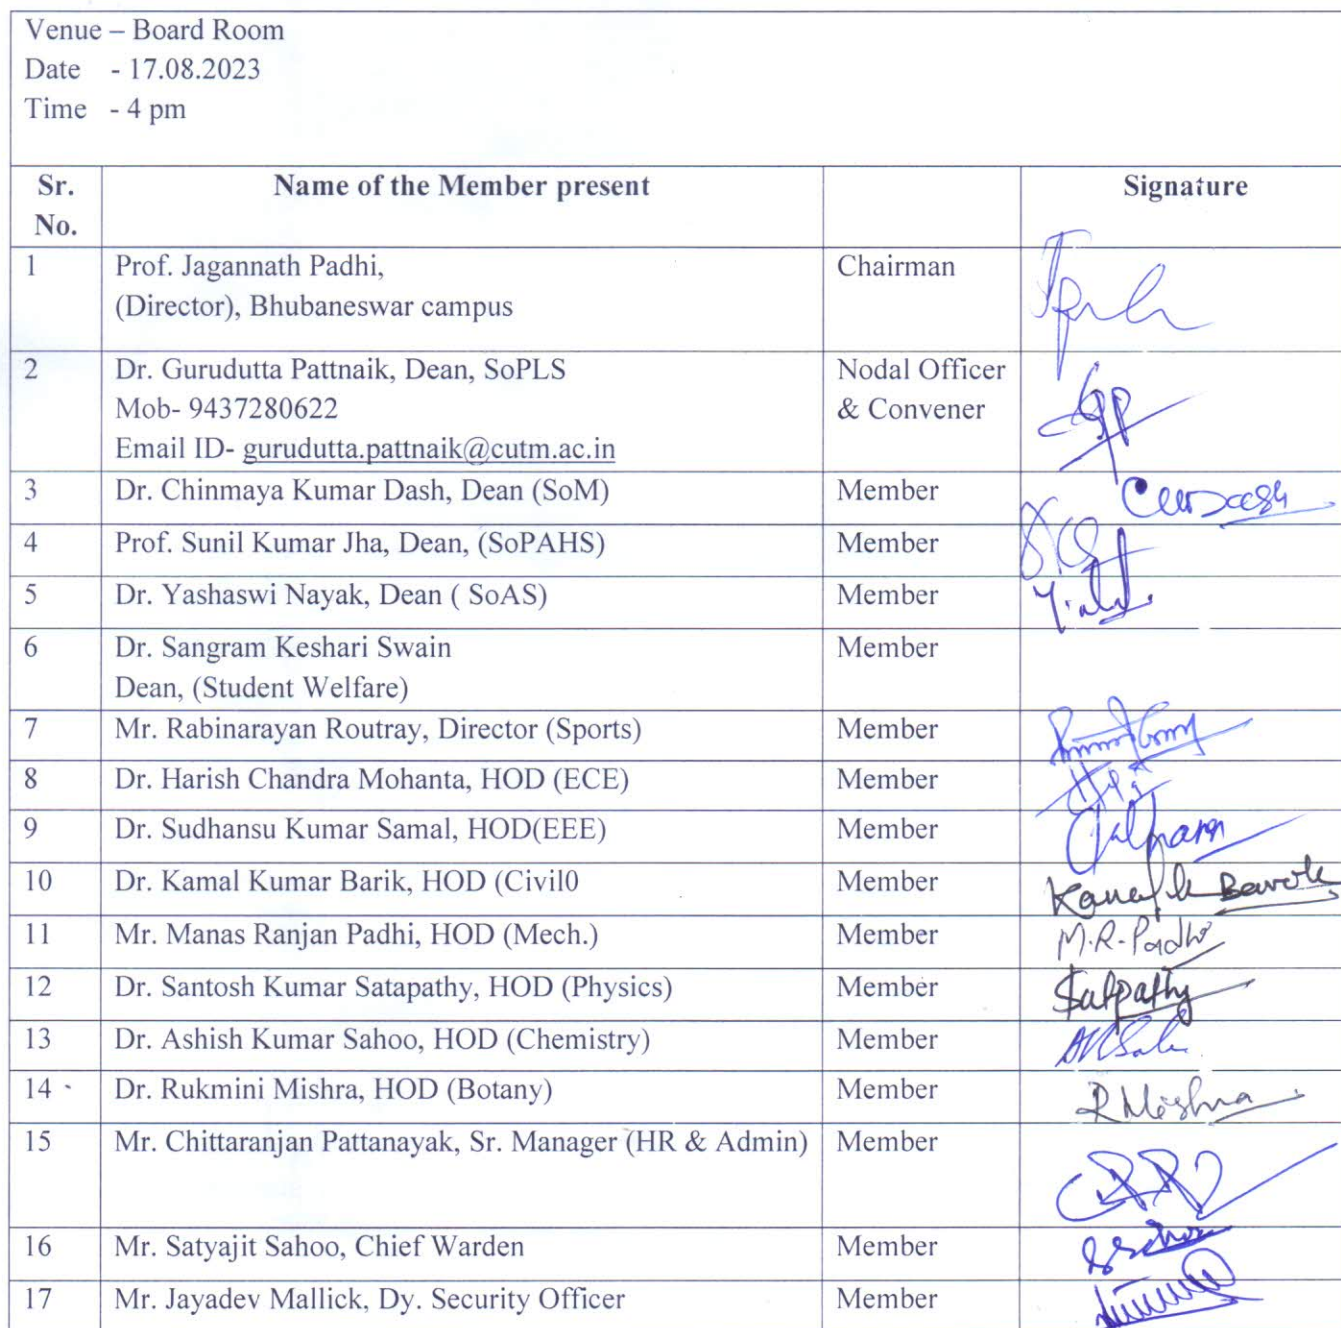 Venue – Board Room
Date - 17.08.2023
Time - 4 pm
Sr. No. Name of the Member present Signature
1 Prof. Jagannath Padhi, Chairman
(Director), Bhubaneswar campus
2 Dr. Gurudutta Pattnaik, Dean, SoPLS Nodal Officer
Mob- 9437280622 & Convener
Email ID- gurudutta.pattnaik@cutm.ac.in
3 Dr. Chinmaya Kumar Dash, Dean (SoM) Member
4 Prof. Sunil Kumar Jha, Dean, (SoPAHS) Member
5 Dr. Yashaswi Nayak, Dean ( SoAS) Member
6 Dr. Sangram Keshari Swain Member
Dean, (Student Welfare)
7 Mr. Rabinarayan Routray, Director (Sports) Member
8 Dr. Harish Chandra Mohanta, HOD (ECE) Member
9 Dr. Sudhansu Kumar Samal, HOD(EEE) Member
10 Dr. Kamal Kumar Barik, HOD (Civil0 Member
11 Mr. Manas Ranjan Padhi, HOD (Mech.) Member M.R-Padhi
12 Dr. Santosh Kumar Satapathy, HOD (Physics) Member Satpathy
13 Dr. Ashish Kumar Sahoo, HOD (Chemistry) Member
14 Dr. Rukmini Mishra, HOD (Botany) Member R Mishra
15 Mr. Chittaranjan Pattanayak, Sr. Manager (HR & Admin) Member
16 Mr. Satyajit Sahoo, Chief Warden Member
17 Mr. Jayadev Mallick, Dy. Security Officer Member